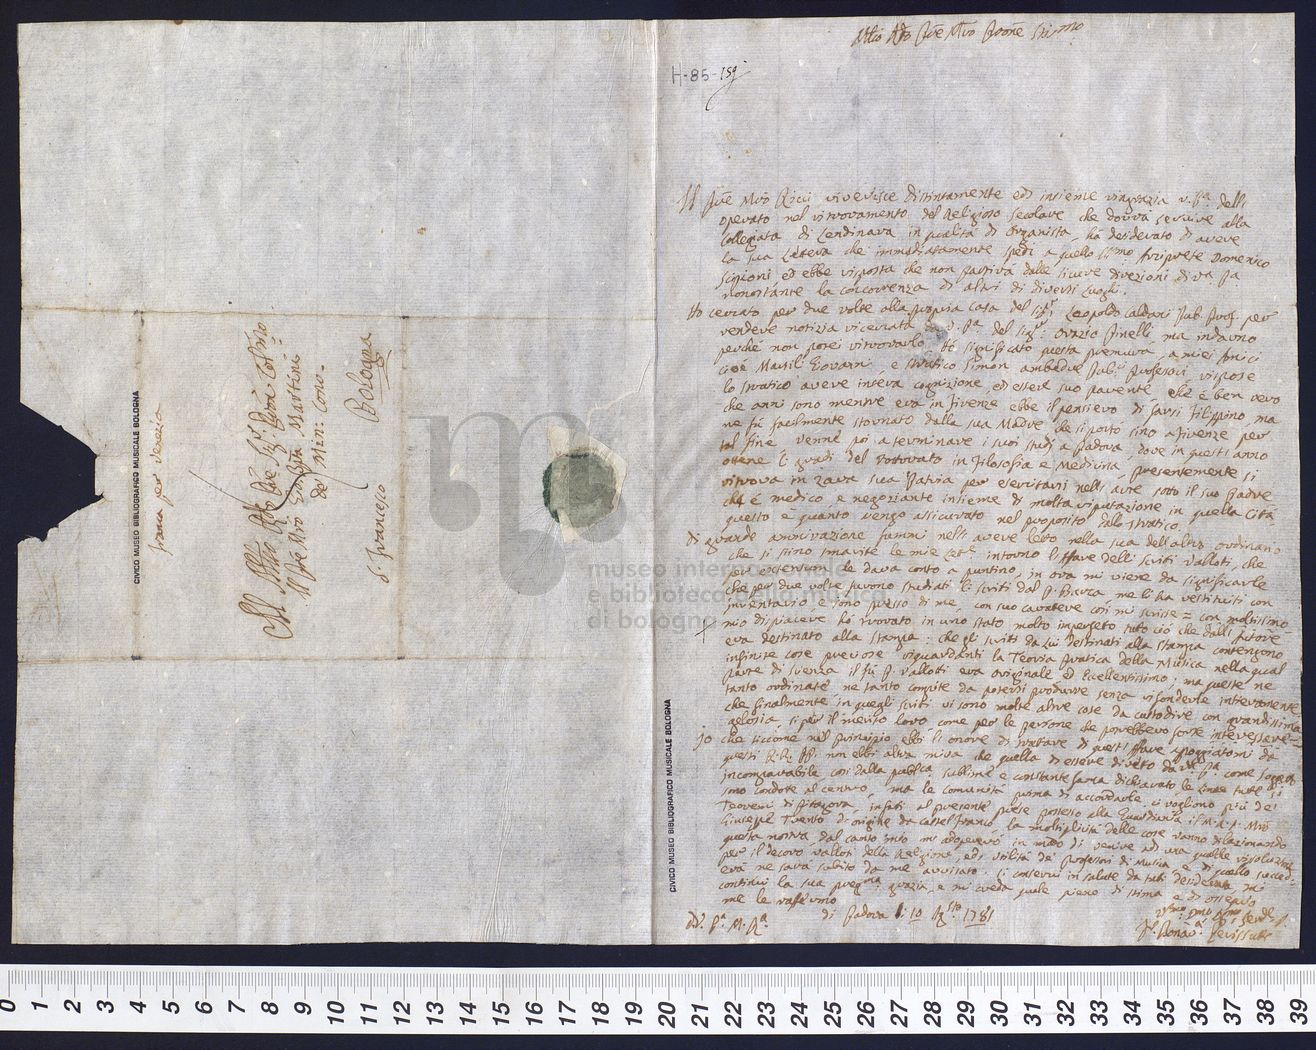 Molto Rdo Pre Mro Prone Stimo
H-85-159
Il Pre Mro Ricci riverisce distintamente ed insieme ringrazia V. Pa. dell
operato nel ritrovamento del Religioso Secolare che dovrà servire alla
Collegiata di Lendinara in qualità di Organista, hà desiderato di avere
la sua Lettera che immediatamente spedì a quello Arciprete Domenico
Scipioni ed ebbe risposta che non partirà dalle sicure direzioni di Va. Pa.
nonostante la concorrenza di altri di diversi luoghi.
Ho cercato per due volte alla propria casa del Sigr. Leopoldo Caldani Pub. Prof. per
vendere notizia ricercata da V. Pa. del Sigr. Orazio Pinelli, ma indarno
perchè non potei ritrovarlo, hò significato questa premura a miei Amici
cioè Marsili Giovanni, e Stratico Simon ambedue Pubci. Professori, rispose
lo Stratico avere intera cognizione, ed essere suo parente, che è ben vero
che anni sono mentre era in Firenze ebbe il pensiero di farsi Filippino, ma
ne fù facilmente stornato dalla sua Madre che si portò sino a Firenze per
tal fine, venne poi a terminare i suoi studj a Padova, dove in quest'anno
ottene li gradi del Dottorato in Filosofia e Medicina, presentemente si
ritrova in Zara sua Patria per esercitarsi nell'arte sotto il suo Padre
che è medico e negoziante insieme di molta riputazione in quella Città
questo è quanto vengo assicurato nel proposito dallo Stratico.
Di grande ammirazione fummi nell'avere letto nella sua dell'altro ordinario
che si sono smarite le mie Lettre intorno l'affare dell'scritti Valloti, che
per extensum le dava conto a puntino, in ora mi viene da significarle
che per due volte furono studiati li scritti dal P. Barca me li ha restituiti con
inventario e sono presso di me, con suo carattere così mi scrisse = con moltissimo
mio dispiacere hò trovato in uno stato molto imperfetto tutto ciò che dall'Autore
era destinato alla stampa: che gli scritti da Lui destinati alla stampa contengono
infinite cose preziose riguardanti la Teoria pratica della Musica nella qual
parte di scienza il fù P. Vallotti era originale ed Eccellentissimo; ma queste ne
tanto ordinate, ne tanto compite da potersi produrre senza rifonderle interamente
che finalmente in quegli scritti vi sono molte altre cose da custodire con grandissima
gelosia, si per il merito loro come per le persone che potrebbero sorse interessare =
Io che siccome nel principio ebbi l'onore di trattare di quest'affare appoggiatomi da
questi RR. PP. non ebbi altra mira che quella di essere diretto da V. Pa. come soggetto
incomparabile così dalla publica sublime e constante fama dichiarato, le linee tutte si
sono condotte al centro, ma le comunità prima di accordarle, ci vogliono più de'
Teoremi di Pitagora, infatti al presente prese possesso alla Guardiania il M.R.P. Mro
Giuseppe Trento di origine da Castel Franco, la moltiplicità delle cose vanno dilazionando
questa nostra, dal canto mio mi adoprerò in modo di venire ad una qualche risoluzione
per il decoro Valloti, della Religione, ed utilità de' Professori di Musica, e di quello succed-
erà ne sarà subito da me avvisato. Si conservi in salute da tutti desiderata, mi
continui la sua pregma grazia, e mi creda quale pieno di stima e di ossequio
me le raffermo
Di V. Pa. M. Rda.
di Padova li 10 Agsto. 1781
Fr. Bonava.
Al Molto Rdo Pre Sigr. Prone Colmo
Il Pre Mro Giambta Martini
de' Min: Conv.
S. Francesco
Bologna
franca per Venezia
CIVICO MUSEO BIBLIOGRAFICO MUSICALE BOLOGNA
CIVICO MUSEO BIBLIOGRAFICO MUSICALE BOLOGNA
museo internazionale
e biblioteca della musica
di bologna
0 1 2 3 4 5 6 7 8 9 10 11 12 13 14 15 16 17 18 19 20 21 22 23 24 25 26 27 28 29 30 31 32 33 34 35 36 37 38 39